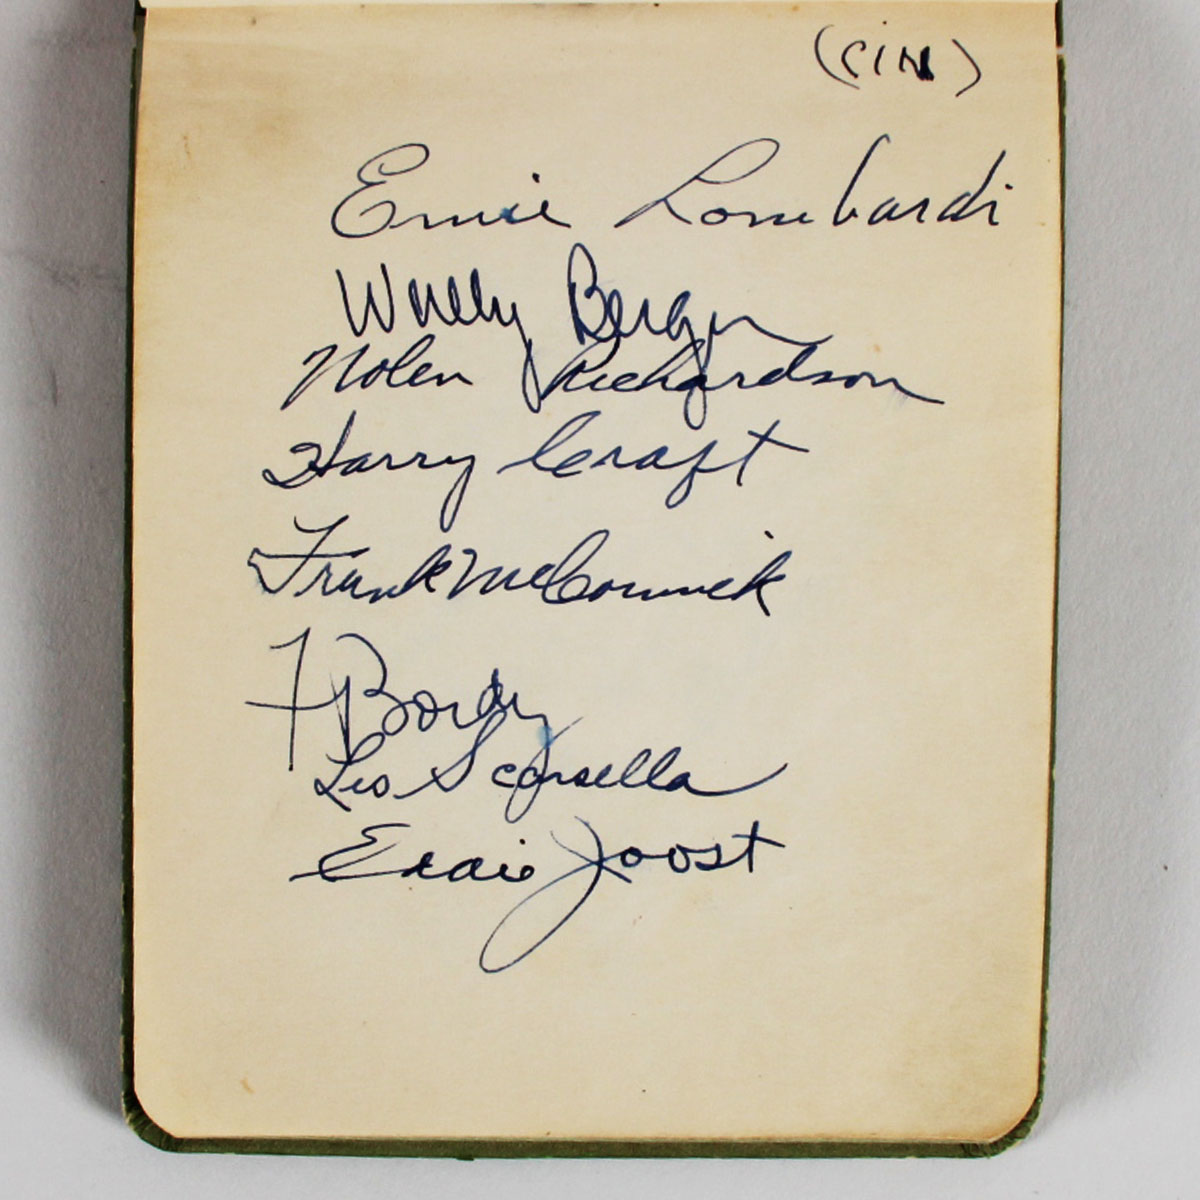 (CIN)
Ernie Lombardi
Wally Berger
Nolen Richardson
Harry Craft
Frank McCormick
F Bordy
Les Scarsella
Eddie Joost